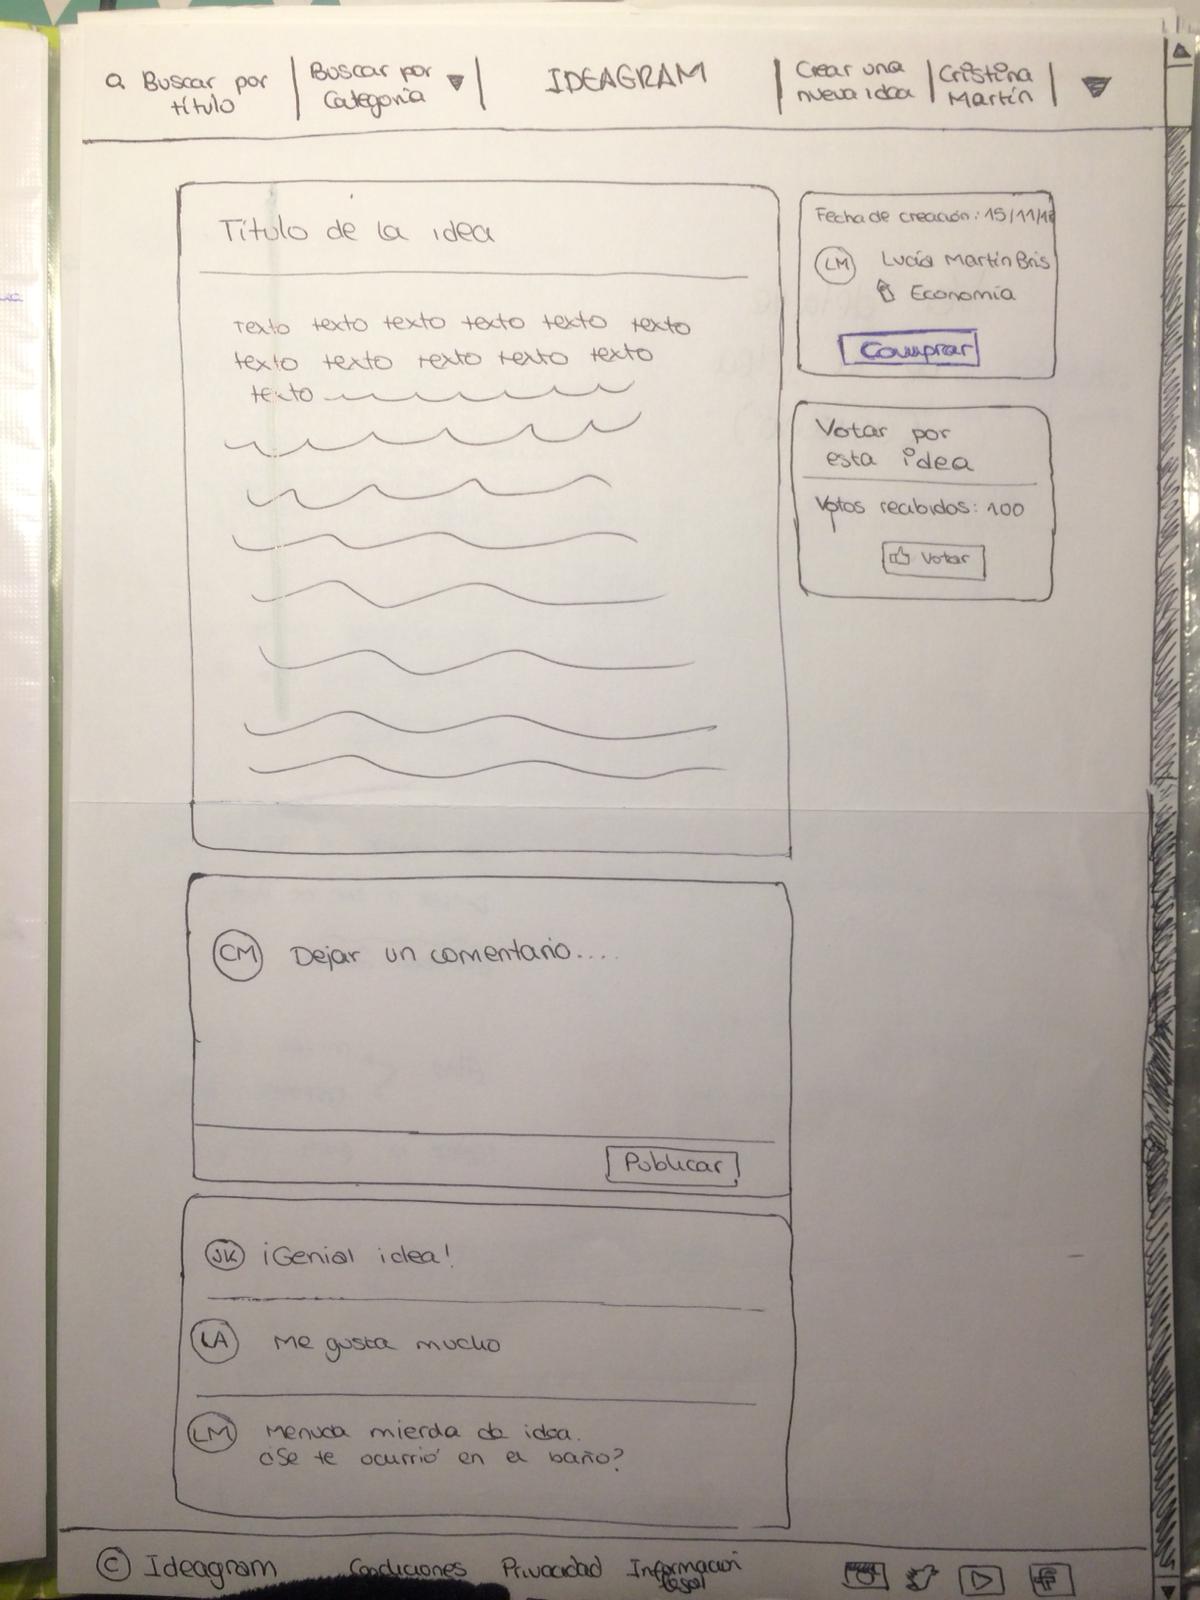 Buscar por
título
Buscar por
Categoría
IDEAGRAM
Crear una
nueva idea
Cristina
Martín
Título de la idea
Texto texto texto texto texto texto
texto texto texto texto texto
texto
Fecha de creación: 15/11/18
LM Lucía Martín Bris
Economía
Comprar
Votar por
esta idea
Votos recibidos: 100
Votar
CM Dejar un comentario....
Publicar
JK ¡Genial idea!
LA Me gusta mucho
LM Menuda mierda de idea.
¿Se te ocurrió en el baño?
© Ideagram Condiciones Privacidad Información
legal